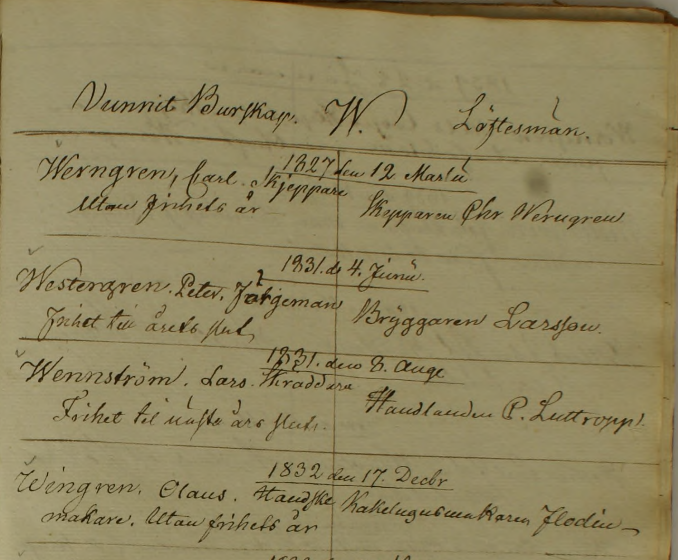 Vunnit Burskap. W. Löftesmän.
1827 den 12 Martii
Werngren, Carl. Skjeppare
Utan frihets år
Skepparen Chr Werngren
1831. d. 4. Junii.
Westergren. Peter.
Frihet till årets slut
Bryggaren Larsson.
1831. den 8. Aug
Wennström. Lars. Skräddare
Frihet til nästa års slut.
Handlanden P. Luttropp
1832 den 17. Decbr
Wingren. Claus. Handske
makare. Utan frihets år
Kakelugnsmakaren Flodin